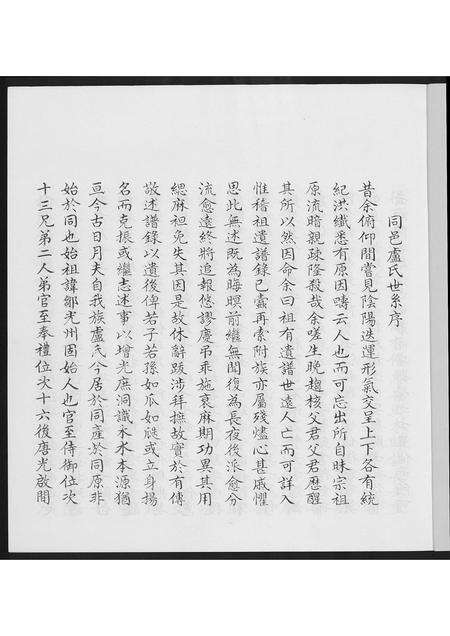 同邑盧氏世系序
昔余俯仰間嘗見陰陽迭運形氣交呈上下各有統
紀洪纖悉有原因疇云人也而可忘出所自昧宗祖
原流暗親疎隆殺哉余嗟生晚趨核父君父君歷醒
其所以然因命余曰祖有遺譜世遠人亡而可詳入
惟稽祖遺譜錄已蠹再索附族亦屬殘燼心甚戚懼
思此無述既為晦暝前繼無聞後為長夜後派愈分
流愈遠終將追報悠謬慶吊乖施哀麻期功異其用
緦麻袒免失其因是故休辭跋涉拜撫故實於有傳
敬述譜錄以遺後俾若子若孫如瓜如瓞或立身揚
名而克振或繼志述事以增光庶洞識木水本源猶
亘今古日月夫自我族盧氏今居於同產於同原非
始於同也始祖諱鄒光州固始人也官至侍御位次
十三兄弟二人弟官至奉禮位次十六後唐光啟間